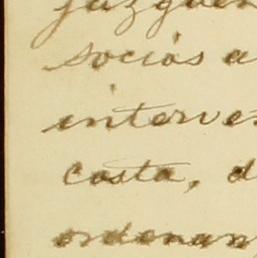 juzguen
socios a
interve
costa, d
ordenan